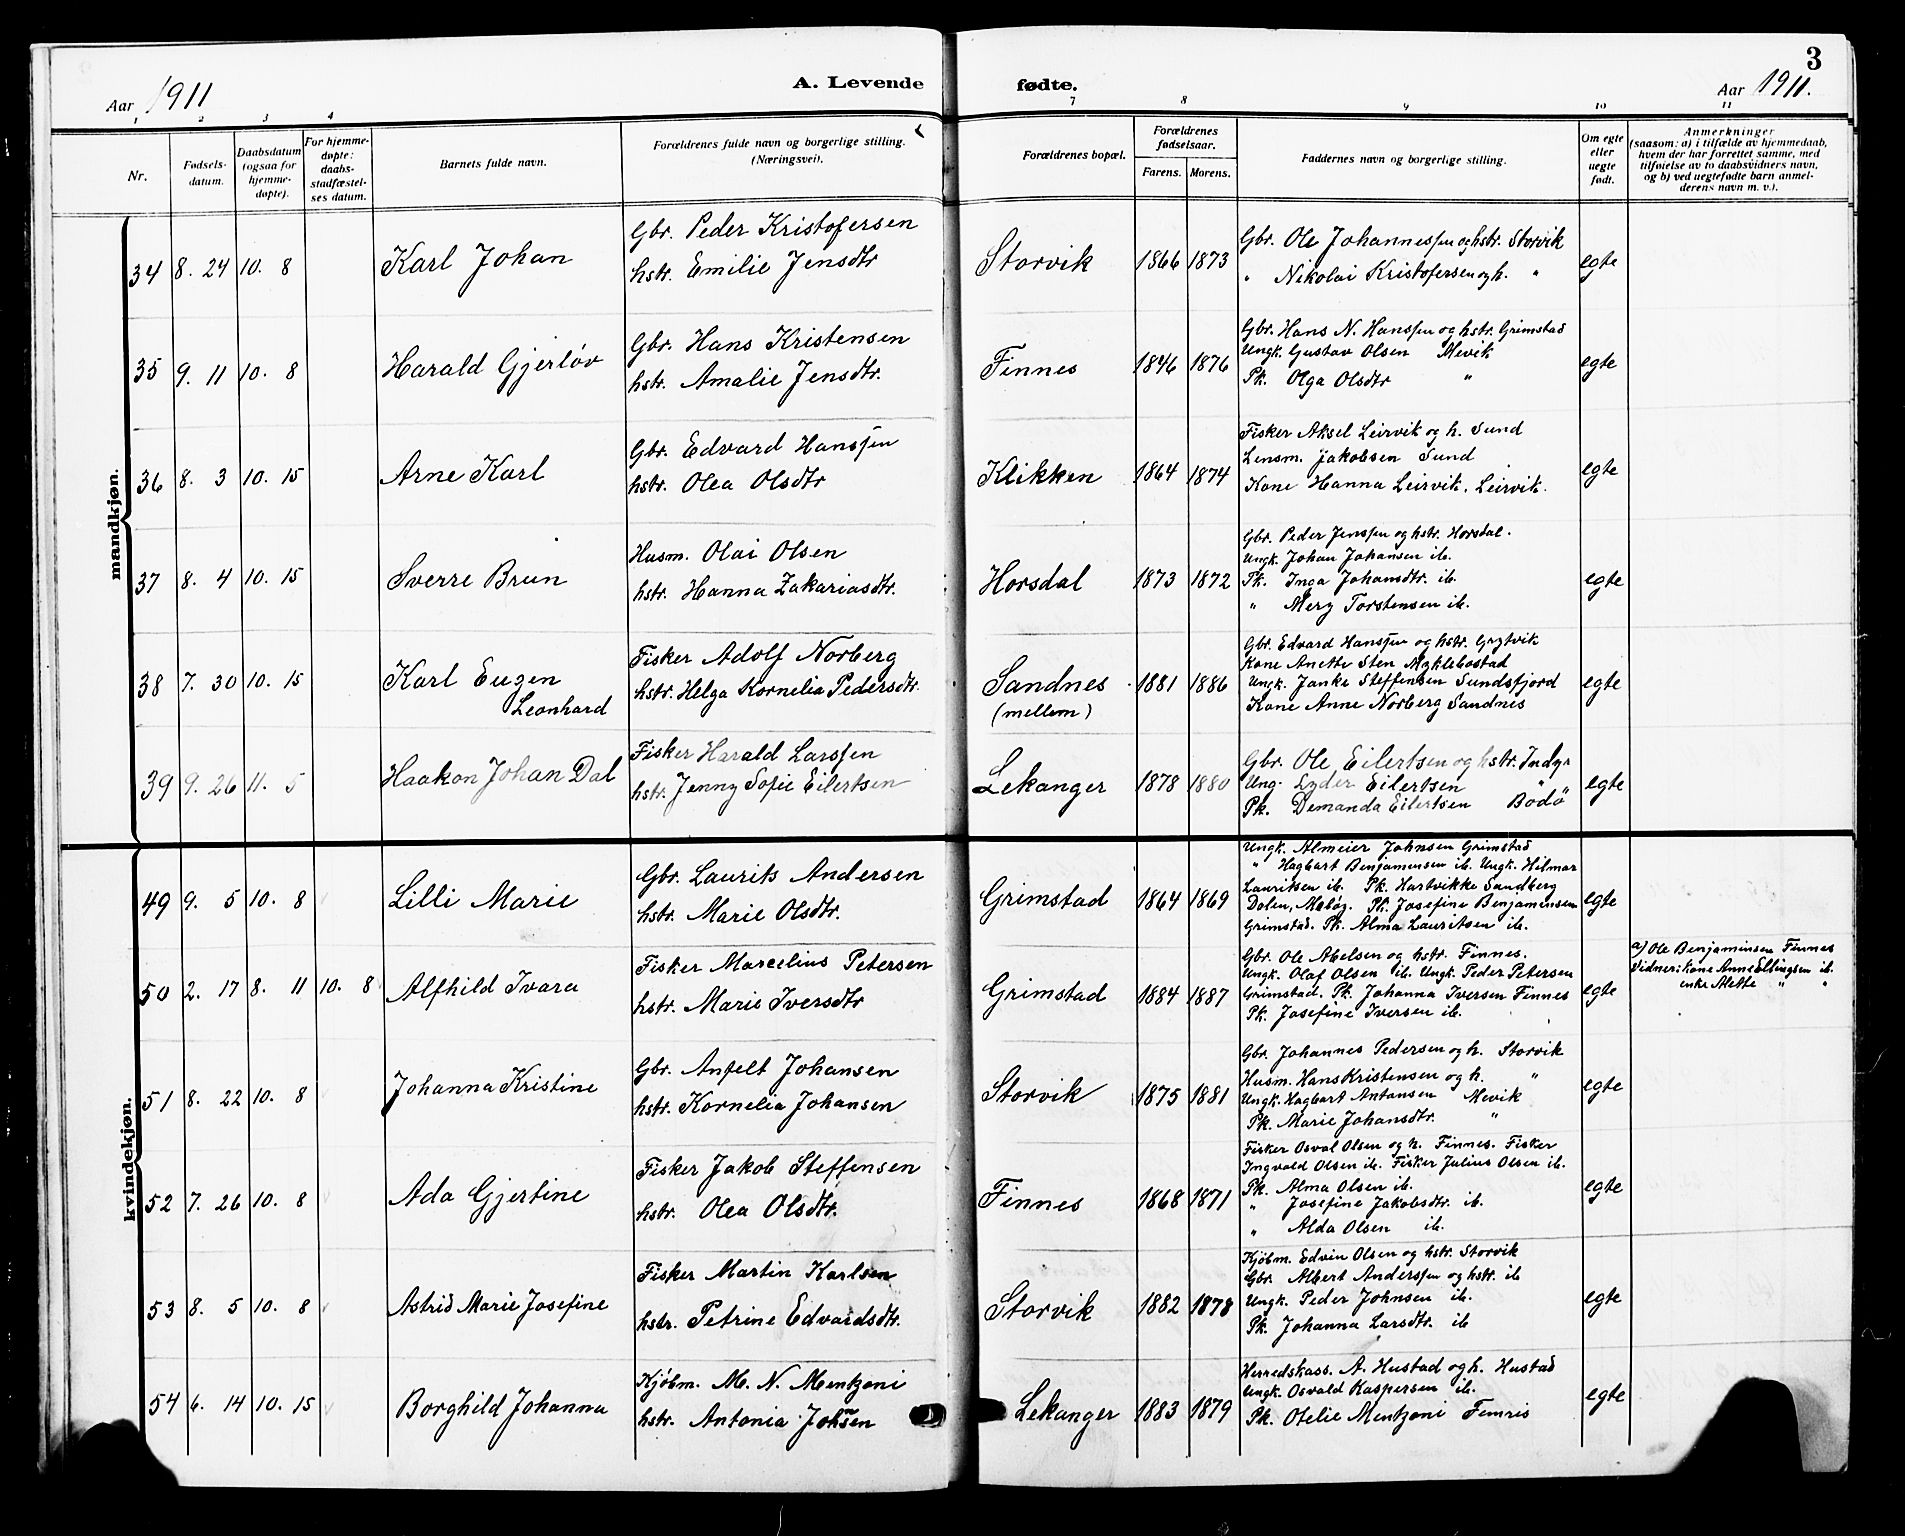 3
Aar 1911
A. Levende fødte.
Aar 1911.
1 2 3 4 7 8 9 10 11
Nr.
Fødsels-
datum.
Daabsdatum
(ogsaa for
hjemme-
døpte).
For hjemme-
døpte:
daabs-
stadfæstel-
ses datum.
Barnets fulde navn.
Forældrenes fulde navn og borgerlige stilling.
(Næringsvei).
Forældrenes bopæl.
Forældrenes
fødselsaar.
Farens. Morens.
Faddernes navn og borgerlige stilling.
Om egte
eller
uegte
født.
Anmerkninger
(saasom: a) i tilfælde av hjemmedaab,
hvem der har forrettet samme, med
tilføielse av to daabsvidners navn,
og b) ved uegtefødte barn anmel-
derens navn m. v.).
mandkjøn.
34 8. 24 10. 8 Karl Johan
Gbr. Peder Kristofersen
hstr. Emilie Jensdtr
Storvik 1866 1873
Gbr. Ole Johannessen og hstr. Storvik
" Nikolai Kristofersen og h. "
egte
35 9. 11 10. 8 Harald Gjerløv
Gbr. Hans Kristensen
hstr. Amalie Jensdtr.
Finnes 1846 1876
Gbr. Hans N. Hanssen og hstr. Grimstad
Ungk. Gustav Olsen Mevik
Pk. Olga Olsdtr "
egte
36 8. 3 10. 15 Arne Karl
Gbr. Edvard Hanssen
hstr. Olea Olsdtr
Klikken 1864 1874
Fisker Aksel Leirvik og h. Sund
Lensm. Jakobsen Sund
Kone Hanna Leirvik, Leirvik.
egte
37 8. 4 10. 15 Sverre Brun
Husm. Olai Olsen
hstr. Hanna Zakariasdtr.
Horsdal 1873 1872
Gbr. Peder Jenssen og hstr. Horsdal.
Ungk. Johan Johansen ib.
Pk. Inga Johansdtr. ib.
" Mery Torstensen ib.
egte
38 7. 30 10. 15 Karl Eugen
Leonhard
Fisker Adolf Norberg
hstr. Helga Kornelia Pedersdtr.
Sandnes
(mellem)
1881 1886
Gbr. Edvard Hanssen og hstr. Grytvik
Kone Anette Sten Myklebostad
Ungk. Janke Steffensen Sundsfjord
Kone Anne Norberg Sandnes
egte
39 9. 26 11. 5 Haakon Johan Dal
Fisker Harald Larssen
hstr. Jenny Sofie Eilertsen
Lekanger 1878 1880
Gbr. Ole Eilertsen og hstr. Indyr
Ung. Lyder Eilertsen "
Pk. Demanda Eilertsen Bodø
egte
kvindekjøn.
49 9. 5 10. 8 Lilli Marie
Gbr. Laurits Andersen
hstr. Marie Olsdtr.
Grimstad 1864 1869
Ungk. Almeier Johnsen Grimstad
" Hagbart Benjamensen ib. Ungk. Hilmar
Lauritsen ib. Pk. Hartvikke Sandberg
Dolen, Meløy. Pk. Josefine Benjamensen
Grimstad. Pk. Alma Lauritsen ib.
egte
50 2. 17 8. 11 10. 8 Alfhild Ivara
Fisker Marcelius Petersen
hstr. Marie Iversdtr
Grimstad 1884 1887
Gbr. Ole Abelsen og hstr. Finnes.
Ungk. Olaf Olsen ib. Ungk. Peder Petersen
Grimstad. Pk. Johanna Iversen Finnes
Pk. Josefine Iversen ib.
egte
a) Ole Benjaminsen Finnes
Vidner: kone Anne Ellingsen ib.
enke Alette " "
51 8. 22 10. 8 Johanna Kristine
Gbr. Anfelt Johansen
hstr. Kornelia Johansen
Storvik 1875 1881
Gbr. Johannes Pedersen og h. Storvik
Husm. Hans Kristensen og h. "
Ungk. Hagbart Antonsen Mevik
Pk. Marie Johansdtr. "
egte
52 7. 26 10. 8 Ada Gjertine
Fisker Jakob Steffensen
hstr. Olea Olsdtr.
Finnes 1868 1871
Fisker Osval Olsen og h. Finnes. Fisker
Ingvald Olsen ib. Fisker Julius Olsen ib.
Pk. Alma Olsen ib.
" Josefine Jakobsdtr. ib.
" Alda Olsen ib.
egte
53 8. 5 10. 8 Astrid Marie Josefine
Fisker Martin Karlsen
hstr. Petrine Edvardsdtr.
Storvik 1882 1878
Kjøbm. Edvin Olsen og hstr. Storvik
Gbr. Albert Anderssen og hstr. ib
Ungk. Peder Johnsen ib.
Pk. Johanna Larsdtr. ib
egte
54 6. 14 10. 15 Borghild Johanna
Kjøbm. M. N. Mentzoni
hstr. Antonia Johnsen
Lekanger 1883 1879
Herredskass. A. Hustad og h. Hustad
Ungk. Osvald Kaspersen ib.
Pk. Otelie Mentzoni Femris
egte